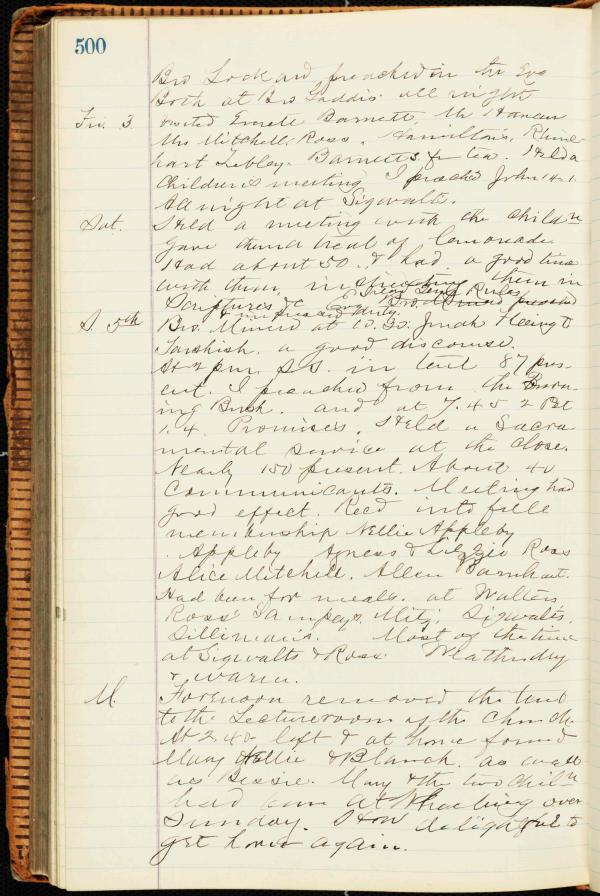 500
Bro Lockard preached in the Eve
Both at Bro Gaddis all night
Fri. 3 visited Everett Barnetts, Mr Hancen
Mrs Mitchell, Ross, Hamilton's, Rhine
hart Barnetts for tea. Held a
children's meeting I preached John 14.1.
All night at Sigwalts.
Sat. Held a meeting with the childn
gave them a treat of lemonade
Had about 50. & had a good time
with them, instructing them in
Scriptures &c Eve Bro. Minerd preached
Read Gen'l Rules
S 5th Bro. Minerd at 10.30. Jonah fleeing to
Tarshish. a good discourse.
At 2 pm. S.S. in tent 87 pres-
ent. I preached from the Burn-
ing Bush. and at 7.45 2 Pet
1.4. Promises. Held a Sacra-
mental service at the close.
Nearly 150 present. About 40
Communicants. Meeting had
good effect. Recd into full
membership Nellie Appleby
. Appleby Agness & Lizzie Ross
Alice Mitchell. Allen Barnhart.
Had been for meals. at Walters
Ross' Sigwalts.
Sillimans. Most of the time
at Sigwalts & Ross. Weather dry
& warm.
M. Forenoon removed the tent
to the Lectureroom of the Church.
At 2.40. left & at home found
Mary Nellie & Blanch. as well
as Bessie. Mary & the two childn
had been at Wheeling over
Sunday. How delightful to
get home again.